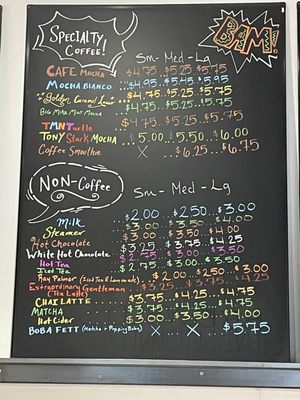 Specialty Coffee!
BAM!
Sm - Med - Lg
CAFE Mocha ... $4.75 $5.25 $5.75
Mocha Bianco ... $4.95 $5.45 $5.95
Golden Caramel ... $4.75 $5.25 $5.75
Mocha ... $4.75 $5.25 $5.75
TMNTurtle ... $4.75 $5.25 $5.75
Tony Stark Mocha ... $5.00 $5.50 $6.00
Coffee Smoothie ... X $6.25 $6.75
Non-Coffee
Sm - Med - Lg
Milk ... $2.00 $2.50 $3.00
Steamer ... $3.00 $3.50 $4.00
Hot Chocolate ... $3.00 $3.50 $4.00
White Hot Chocolate ... $3.25 $3.75 $4.25
Hot Tea ... $2.75 $3.00 $3.50
Iced Tea ... $2.75 $3.00 $3.50
Ray Palmer (Iced Tea & Lemonade) ... $2.00 $2.50 $3.00
Extraordinary Gentleman ... $3.25 $3.75 $4.25
(Tea Latte)
CHAI LATTE ... $3.75 $4.25 $4.75
MATCHA ... $3.75 $4.25 $4.75
Hot Cider ... $3.00 $3.50 $4.00
BOBA FETT (Matcha + Popping Boba) X X $5.75